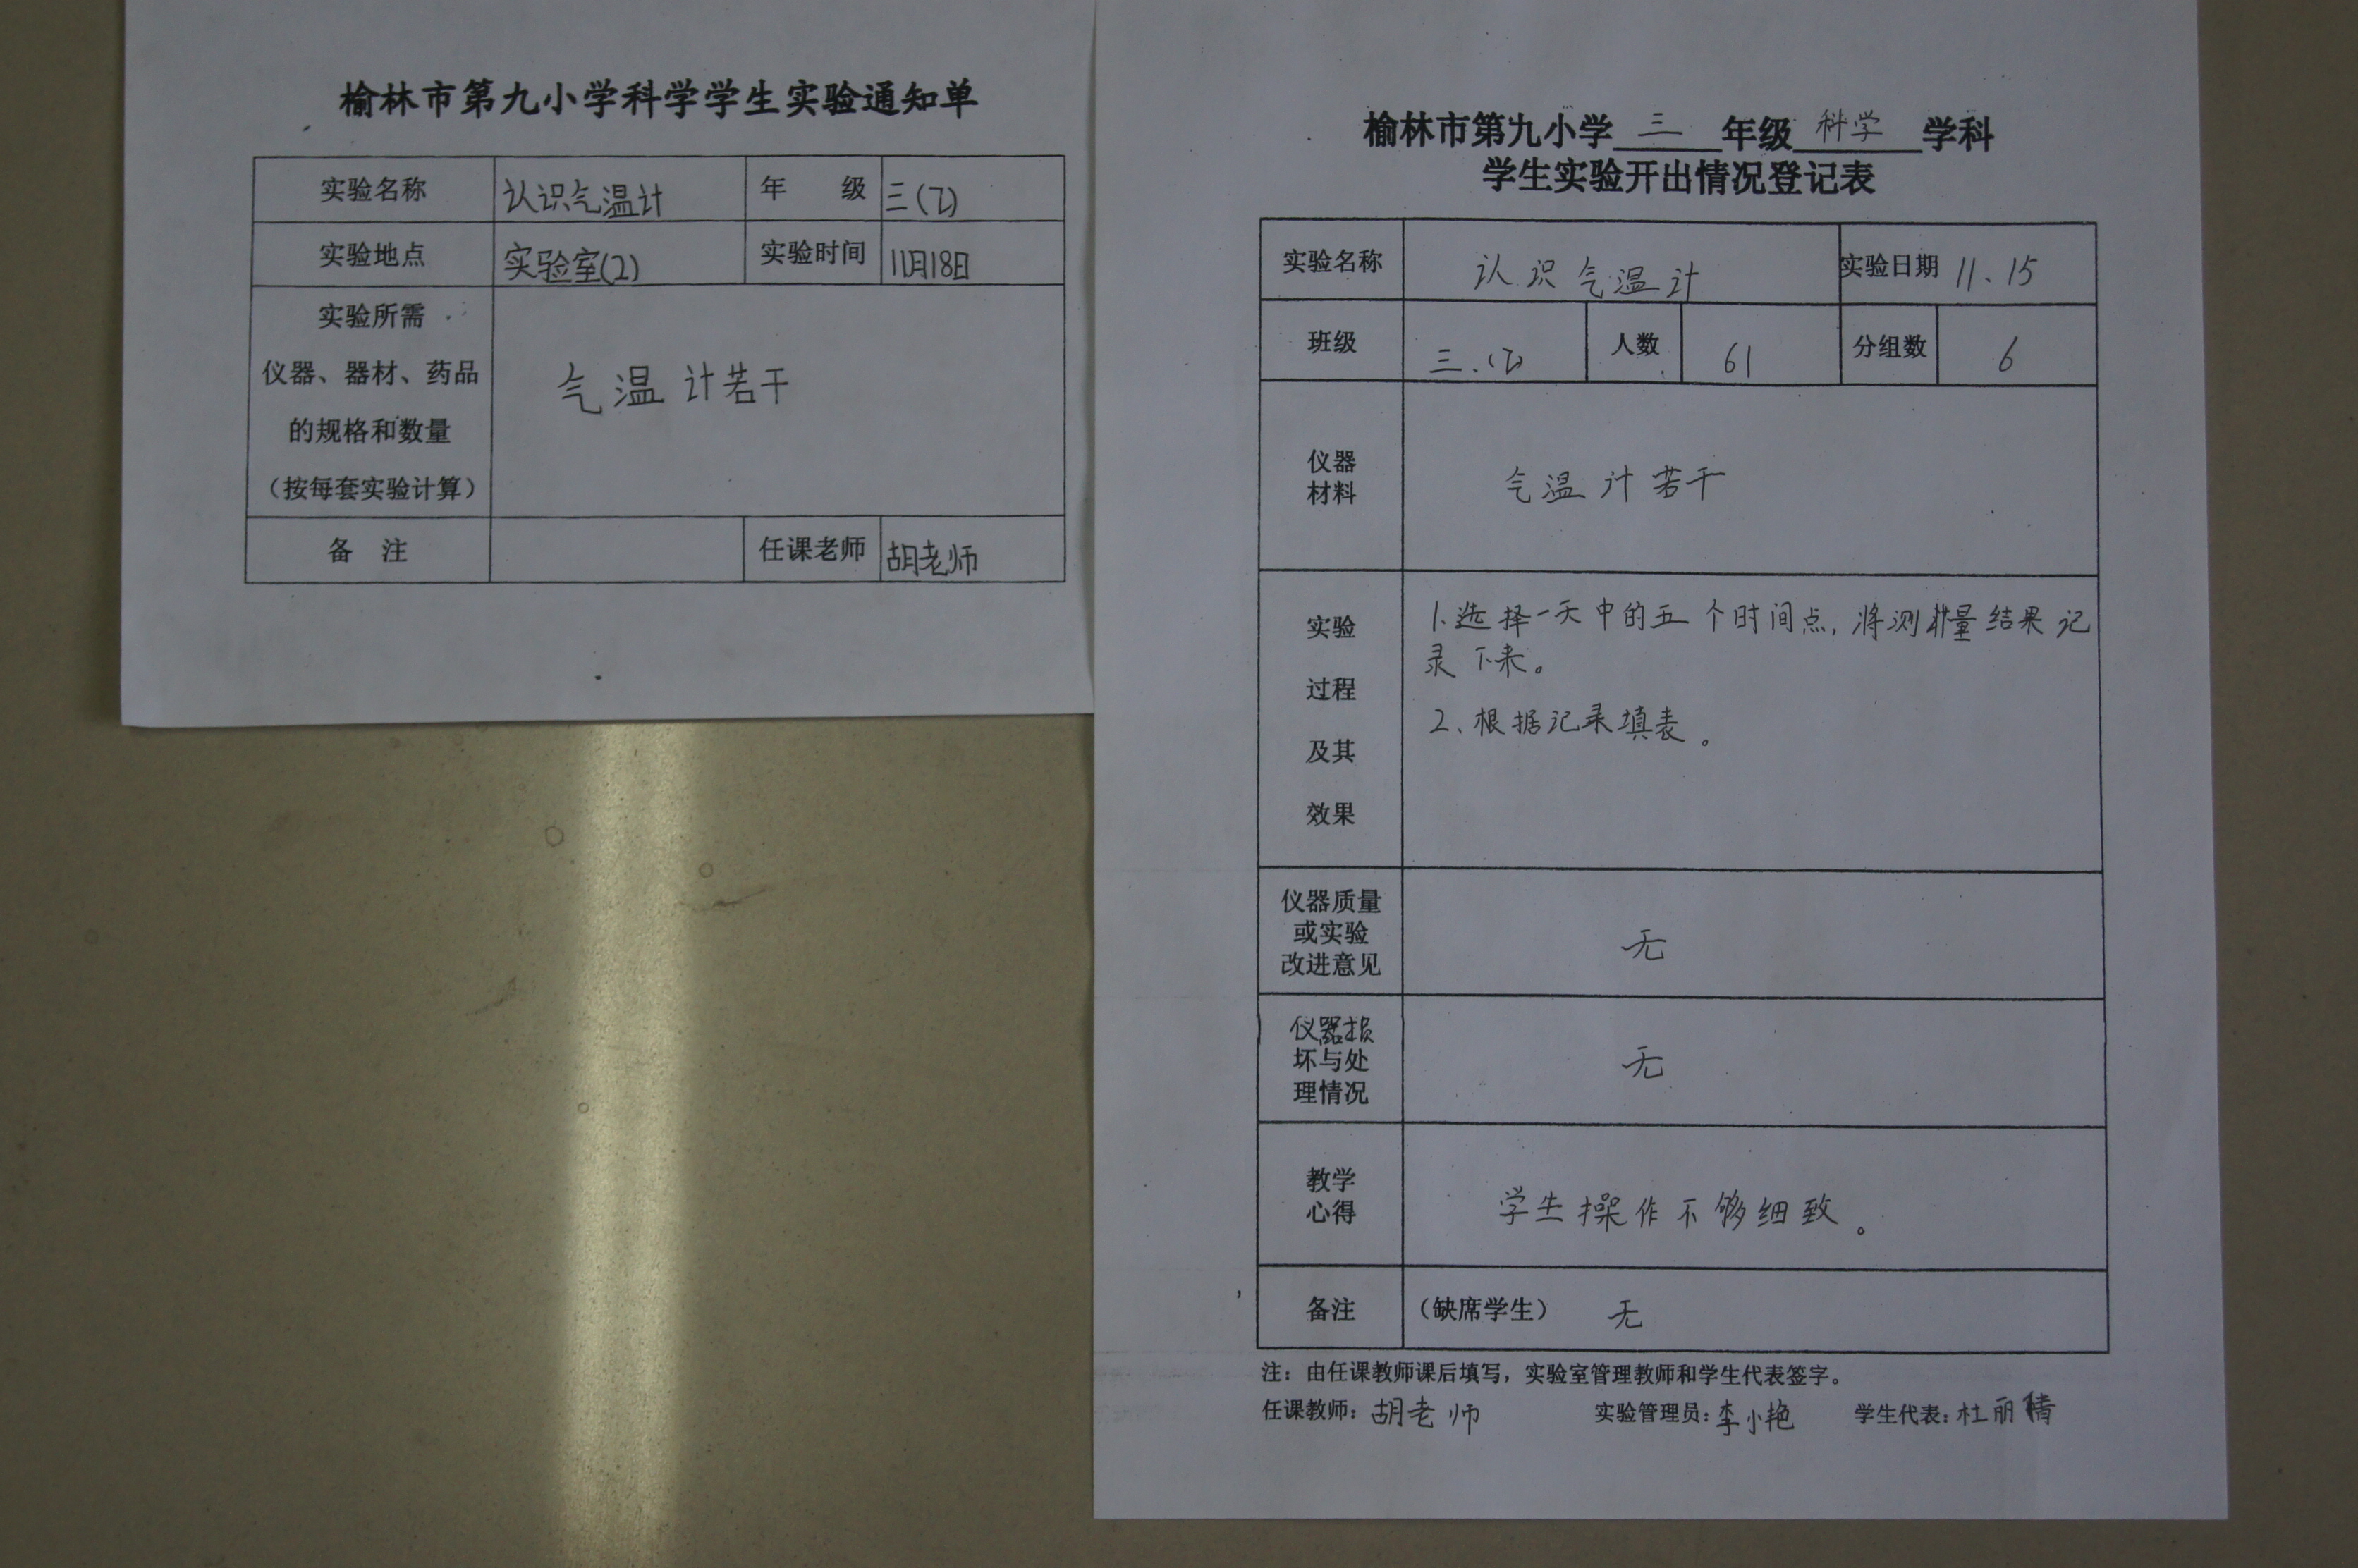 榆林市第九小学科学学生实验通知单
实验名称 认识气温计 年 级 三(乙)
实验地点 实验室(2) 实验时间 11月18日
实验所需
仪器、器材、药品
的规格和数量
(按每套实验计算)
气温计若干
备 注 任课老师 胡老师
榆林市第九小学 三 年级 科学 学科
学生实验开出情况登记表
实验名称 认识气温计 实验日期 11.15
班级 三.(乙) 人数 61 分组数 6
仪器
材料
气温计若干
实验
过程
及其
效果
1.选择一天中的五个时间点,将测量结果记
录下来。
2、根据记录填表。
仪器质量
或实验
改进意见
无
仪器损
坏与处
理情况
无
教学
心得
学生操作不够细致。
备注 (缺席学生) 无
注:由任课教师课后填写,实验室管理教师和学生代表签字。
任课教师:胡老师 实验管理员:李小艳 学生代表:杜丽倩